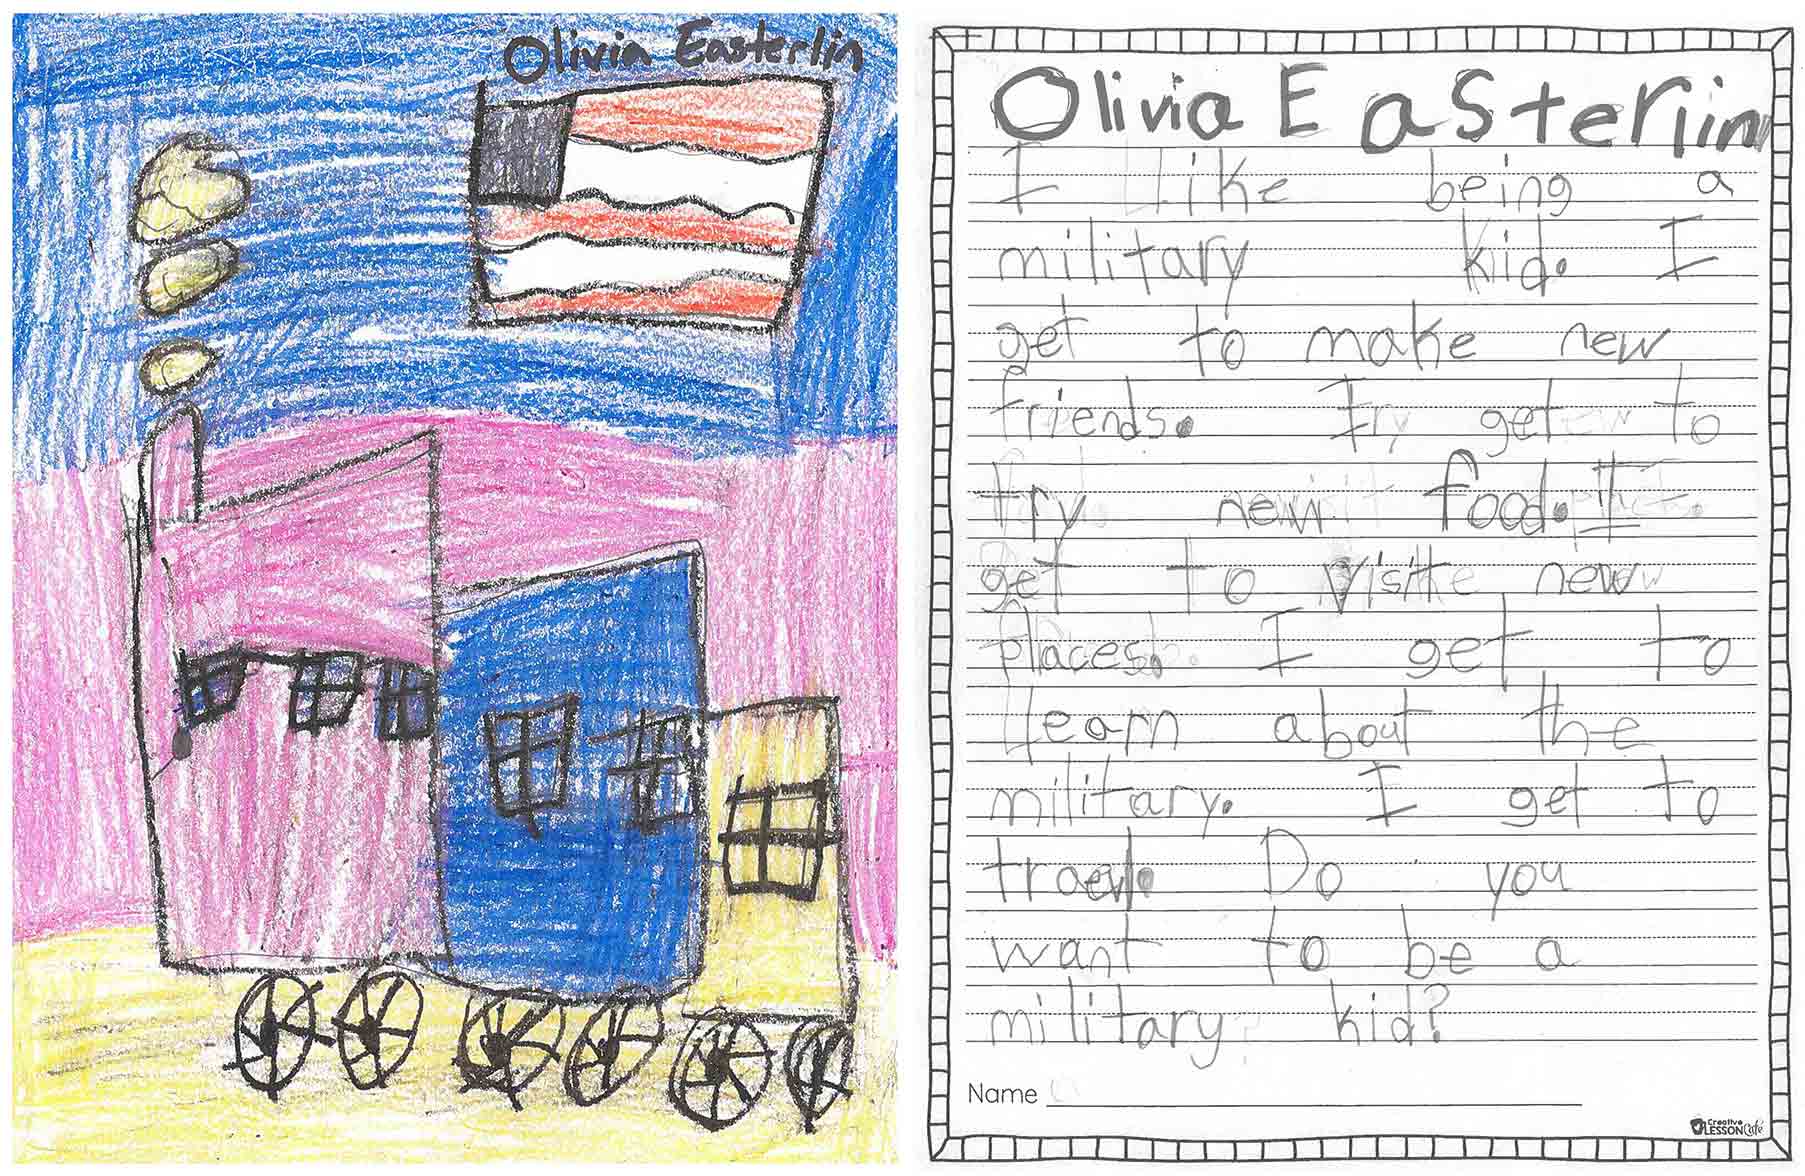 Olivia Easterlin
Olivia Easterlin
I Like being a
military kid. I
get to make new
friends. I get to
try new food. I
get to visit new
places. I get to
Learn about the
military. I get to
travel. Do you
want to be a
military kid?
Name
Creative
LESSON Cafe